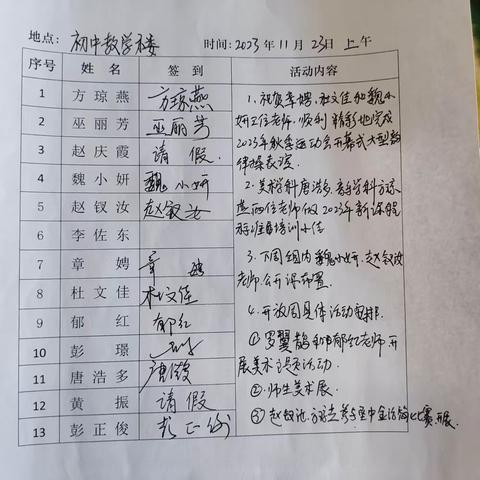 地点: 初中教学楼 时间: 2023年11月23日上午
序号 姓名 签到 活动内容
1 方琼燕 方琼燕
2 巫丽芳 巫丽芳
3 赵庆霞 请假.
4 魏小妍 魏小妍
5 赵钗汝 赵钗汝
6 李佐东
7 章娉 章娉
8 杜文佳 杜文佳
9 郁红 郁红
10 彭璟
11 唐浩多 唐浩
12 黄振 请假
13 彭正俊 彭正俊
1、祝贺章娉,杜文佳和魏小
妍三位老师,顺利精彩地完成
2023年秋季运动会开幕式大型韵
律操表演.
2、美术学科唐浩多,音乐学科方琼
燕两位老师做2023年新课程
标准培训小结
3、下周组内魏小妍,赵钗汝
老师公开课布置.
4、开放周具体活动安排.
①罗翼鹄和郁红老师开
展美术主题活动.
②师生美术展.
③赵钗汝,方琼燕参与 比赛开展.